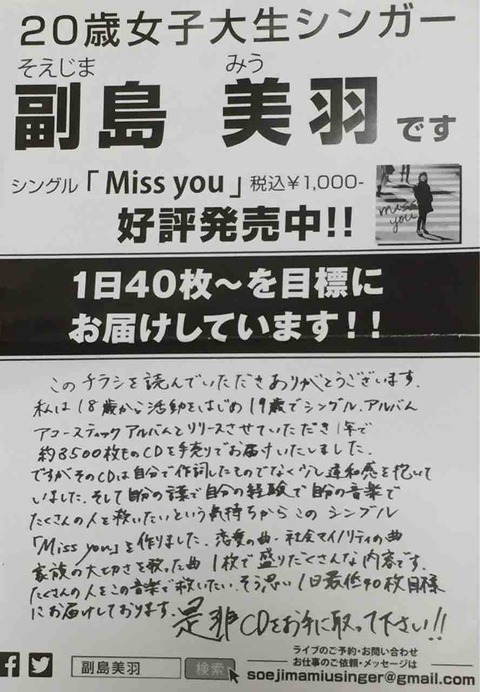 20歳女子大生シンガー
そえじま みう
副島 美羽 です
シングル「 Miss you 」税込¥1,000-
好評発売中!!
miss you
1日40枚〜を目標に
お届けしています!!
このチラシを読んでいただきありがとうございます.
私は18歳から活動をはじめ19歳でシングル.アルバム
アコースティックアルバムとリリースさせていただき1年で
約8500枚ものCDを手売りでお届けいたしました.
ですがそのCDは自分で作詞したものでなく少し違和感を抱いて
いました.そして自分の謡で自分の経験で自分の音楽で
たくさんの人を救いたいという気持ちからこのシングル
「Miss you」を作りました.恋愛の曲・社会マイノリティの曲
家族の大切さを歌った曲 1枚で盛りだくさんな内容です.
たくさんの人をこの音楽で救いたい.そう思い1日最低40枚目標
にお届けしております.是非CDをお手に取って下さい!!
副島美羽 検索
ライブのご予約・お問い合わせ
お仕事のご依頼・メッセージは
soejimamiusinger@gmail.com